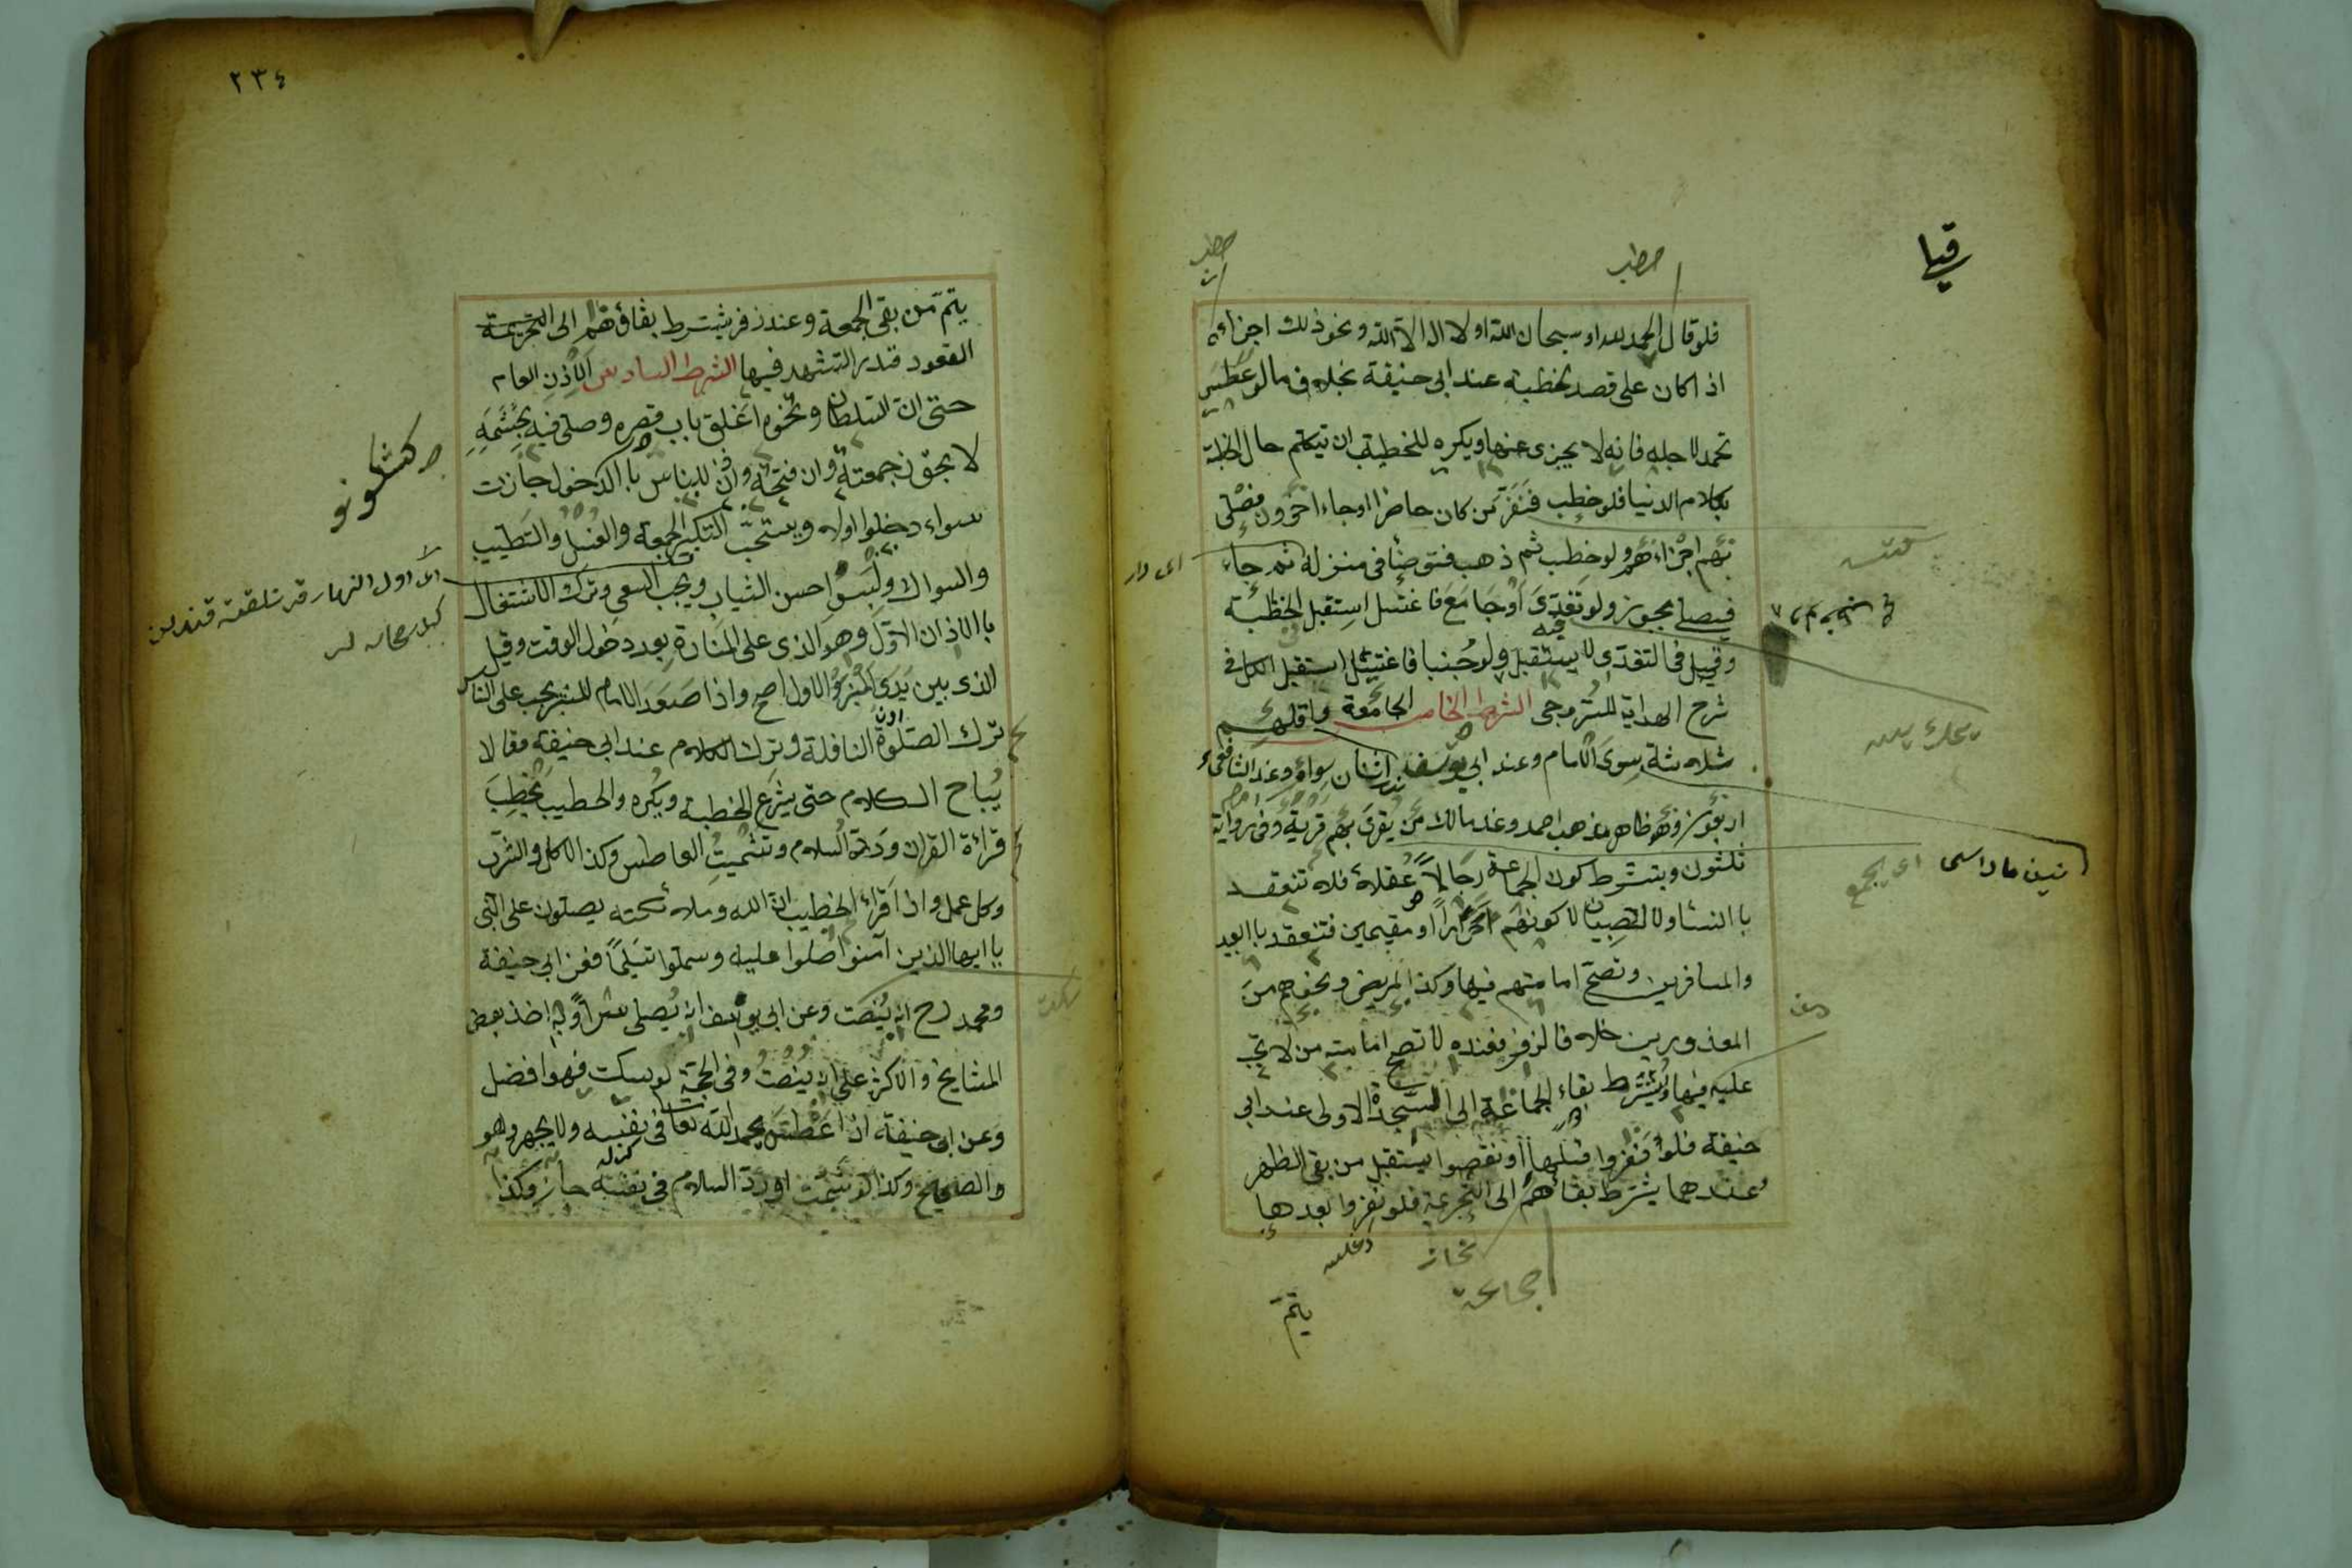 فلو قال الحمد لله او سبحان الله او لا اله الا الله ونحو ذلك اجزاءه
اذا كان على قصد الخطبة عند ابى حنيفة بخلاف ما لو عطس
تحمد لاجله فانه لا يجزى عنها ويكره للخطيب ان يتكلم حال الخطبة
بكلام الدنيا فلو خطب فنفر من كان حاضرا او جاء اخرون فصلى
بهم اجزاءهم ولو خطب ثم ذهب فتوضئا فى منزله ثم جاء
فيصلى يجوز ولو تغدى او جامع فاغتسل استقبل الخطبة
وقيل فى التغدى لا يستقبل ولو جنبا فاغتسل استقبل الكل فى
شرح الهداية للسروجى الشرط الخامس الجامعة واقلهم
ثلاثة سوى الامام وعند ابى يوسف اثنان سواه وعند الشافعى
اربعون وهو ظاهر مذهب احمد وعند مالك من يقرى بهم قرية وفى رواية
ثلثون ويشترط كون الجماعة رجالا عقلاء فلا تنعقد
با النساء ولا الصبيان لا كونهم احرارا او مقيمين فتنعقد با العبيد
والمسافرين وتصح امامتهم فيها وكذا المريض ونحوهم من
المعذورين خلافا لزفر فعنده لا تصح امامته من لا تجب
عليه فيها ويشترط بقاء الجماعة الى السجدة الاولى عند ابى
حنيفة فلو نفروا قبلها او نقصوا يستقبل من بقى الظهر
وعندهما يشترط بقاءهم الى التحريمة فلو نفروا بعدها
يتم
اى يجمع
٢٣٤
يتم من بقى الجمعة وعند زفر يشترط بقاؤهم الى التحريمة
القعود قدر التشهد فيها الشرط السادس الاذن العام
حتى ان السلطان ونحوه اغلق باب قصره وصلى فيه بحشمه
لا يجوز جمعته وان فتحه واذن للناس با الدخول جازت
سواء دخلوا او لا ويستحب التبكير الجمعة والغسل والتطيب
والسواك ولبس احسن الثياب ويجب السعى وترك الاشتغال
با الاذان الاول وهو الذى على المنارة بعد دخول الوقت وقيل
الذى بين يدى المنبر والاول اصح واذا صعد الامام المنبر يجب على الناس
ترك الصلوة النافلة وترك الكلام عند ابى حنيفة وقالا
يباح الكلام حتى يشرع الخطبة ويكره والخطيب يخطب
قراءة القران ورد السلام وتشميت العاطس وكذا الاكل والشرب
وكل عمل واذا قراء الخطيب ان الله وملائكته يصلون على النبى
يا ايها الذين آمنوا صلوا عليه وسلموا تسليما فعن ابى حنيفة
ومحمد رح انه ينصت وعن ابى يوسف انه يصلى سرا وبه اخذ بعض
المشايخ والاكثر على انه ينصت وفى الحجة لو سكت فهو افضل
وعن ابى حنيفة اذا عطس يحمد الله تعا فى نفسه ولا يجهر وهو
والصحيح وكذا لو شمت او رد السلام فى نفسه جاز وكذا
اى اول النهار